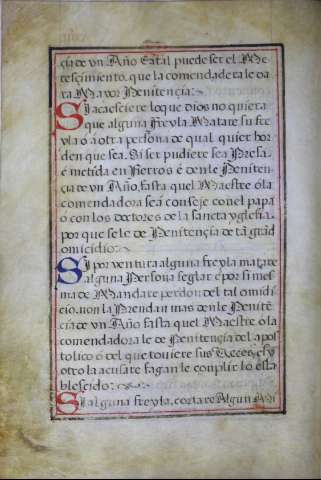 çia de vn Año E atal puede ser el Me
resçimiento, que la comendadera le da
ra Mayor Penitençia:
Si acaesciere lo que dios no quiera
que alguna freyla Matare su fre
yla ó á otra persona de qual quier hor
den que sea. Si ser pudiere sea Presa
é metida en fierros é denle Peniten
cia de vn Año, fasta quel Maestre ó la
comendadora sea conseje con el papa
ó con los doctores de la sancta yglesia
por que se le de Penitençia de tã grãd
omicidio:
Si por ventura alguna freyla matare
alguna Persona seglar é por si mes
ma de Mandare perdon del tal omidi
çio, non la Prendan mas denle Penitẽ
çia de vn Año fasta quel Maestre ó la
comendadora le de Penitençia del apos
tolico ó del que touiere sus Veces, é si
otro la acusare fagan le complir lo esta
blescido:
Si alguna freyla, cortare Algun Mi